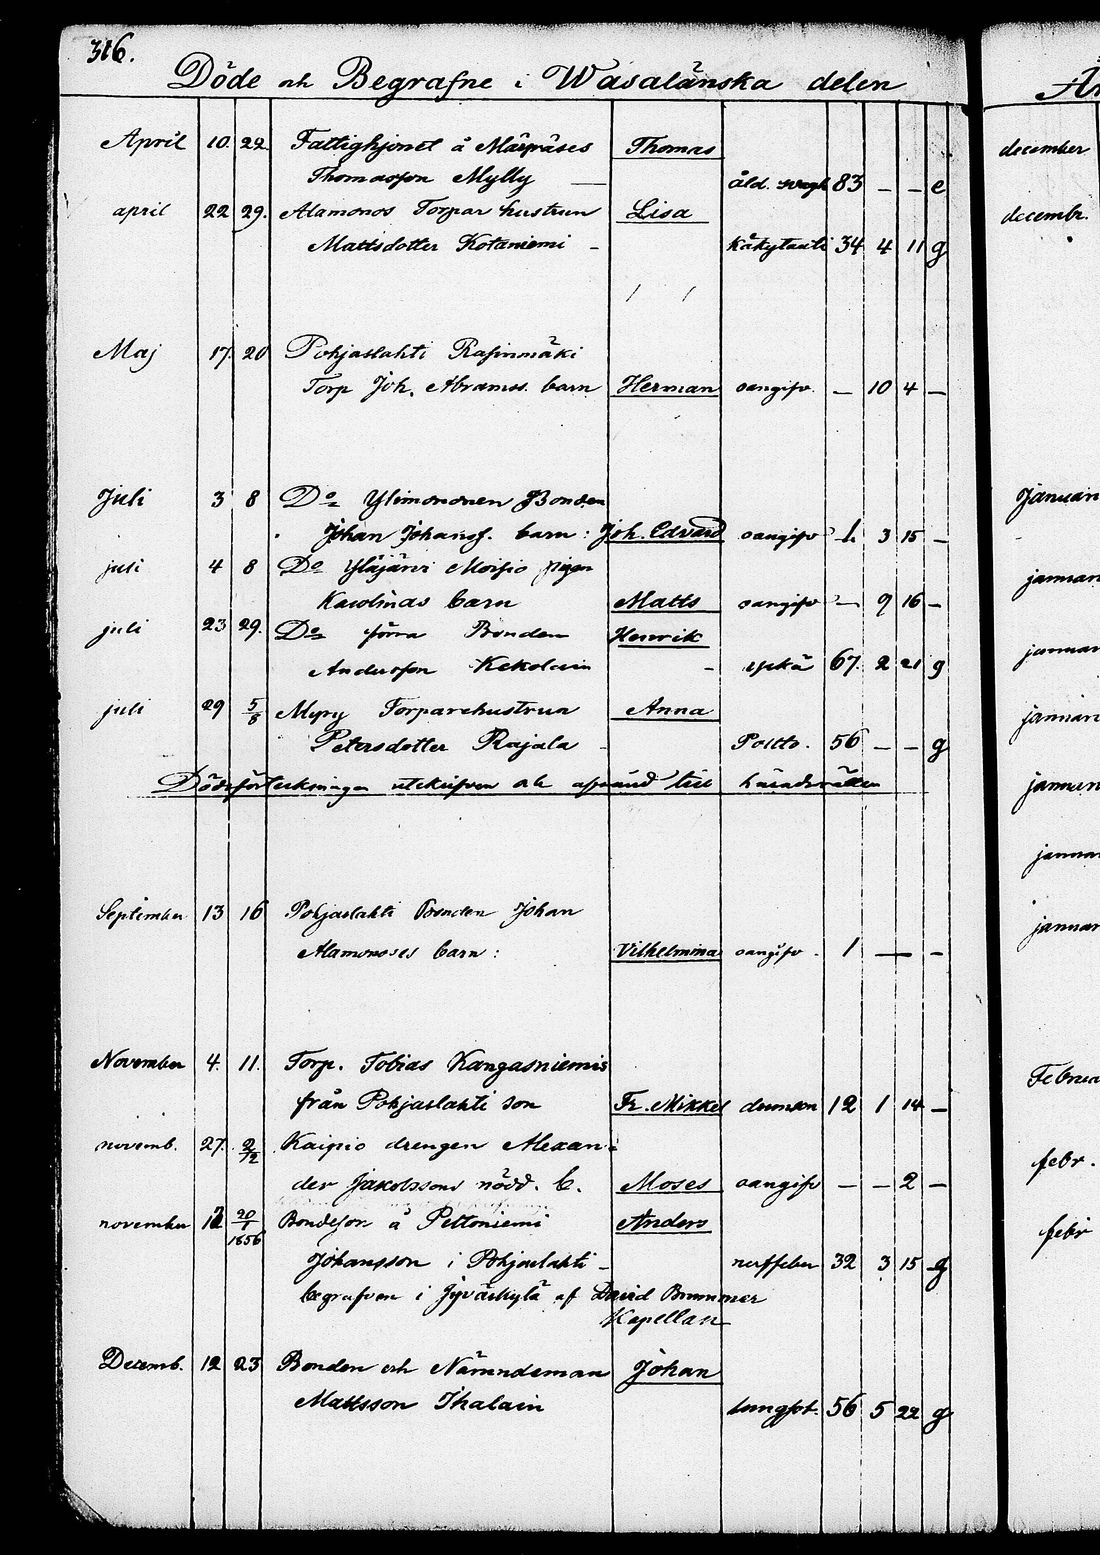 316.
Döde och Begrafne i Wasalänska delen
April 10. 22. Fattighjonet å Thomas
Thomasson Mylly — åld. svagh. 83 — — e
april 22 29. Alamonos Torpar hustrun Lisa
Mattsdotter Kotaniemi - 34 4 11 g
Maj 17. 20 Pohjaslahti
Torp Joh. Abramss. barn Herman oangifv. — 10 4 —
Juli 3 8 Do Ylimononen Bonden
Johan Johansf. barn: Joh. Edvard oangifv 1. 3 15 —
juli 4 8 Do Yläjärvi Moisio pigan
Karolinas barn Matts oangifv — 9 16 —
juli 23 29. Do förra Bonden Henrik
Andersson Kekolain - 67. 2 21 g
juli 29 5/8 Myry Torparehustrun Anna
Petersdotter Rajala - 56 — — g
Dödsförteckningen utskrifven och afsänd till häradsrätten
September 13 16 Pohjaslahti Bonden Johan
Alamonoses barn: Vilhelmina oangifv. 1 — -
November 4. 11. Torp. Tobias Kangasniemis
från Pohjaslahti son Fr. Mikkel 12 1 14 —
novemb. 27. 2/12 Kaipio drengen Alexan=
der Jakobssons nödd. b. Moses oangifv — — 2 —
november 20/1 1856 Bondeson å Peltoniemi Anders
Johansson i Pohjaslahti - nerffeber 32 3 15 g
begrafven i Jyväskylä af David Brummer
Kapellan
Decemb. 12 23 Bonden och Nämndeman Johan
Mattsson Ihalain lungsot. 56 5 22 g
december
decembr.
Januari
januari
januari
januari
januari
januari
januari
Februari
febr.
febr